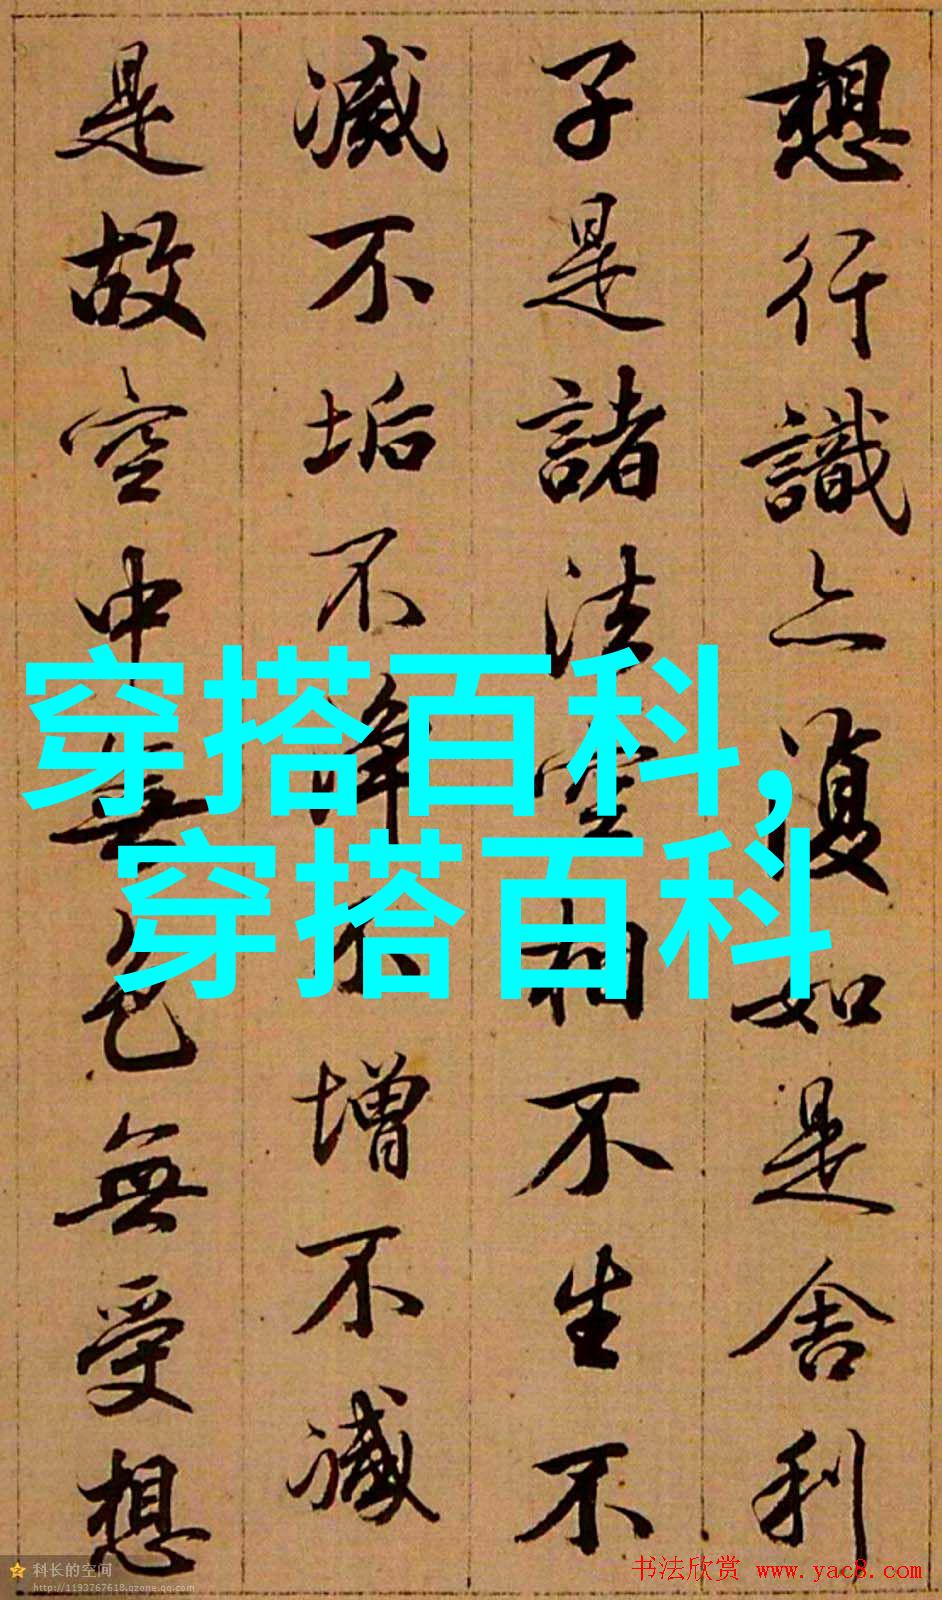 想行識亦復如是舍利
子是諸法空相不生不
滅不垢不淨不增不減
是故空中無色無受想
穿搭百科,
穿搭百科
科长的空间
http://1193767618.qzone.qq.com
书法欣赏 www.yac8.com